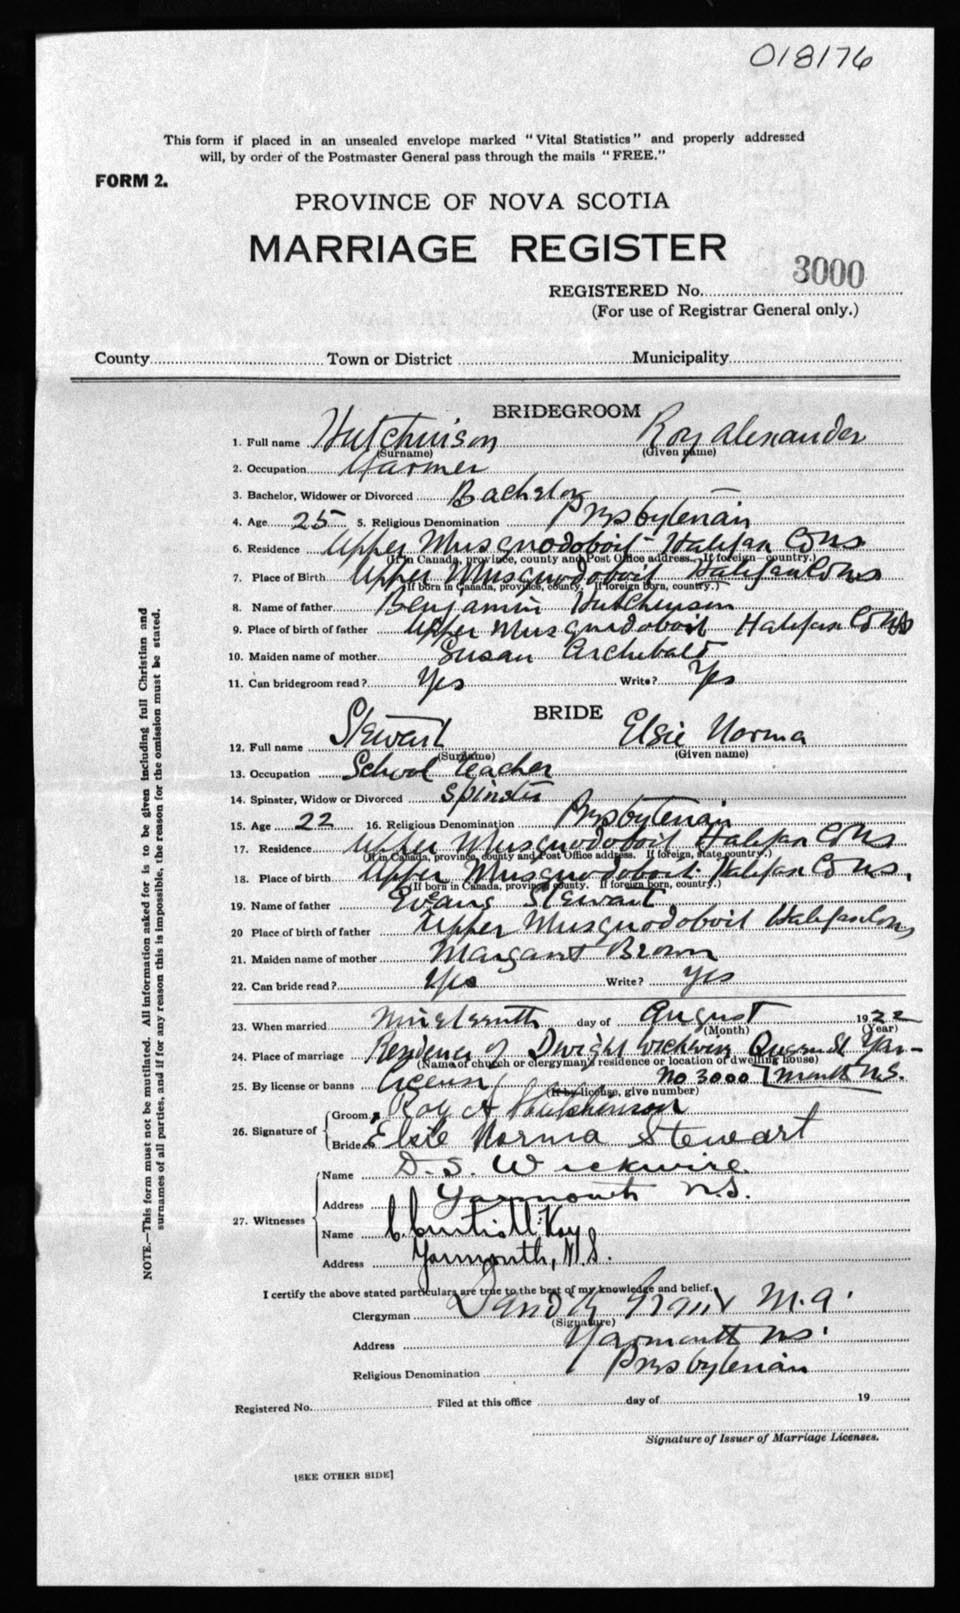 018176
This form if placed in an unsealed envelope marked "Vital Statistics" and properly addressed
will, by order of the Postmaster General pass through the mails "FREE."
FORM 2.
PROVINCE OF NOVA SCOTIA
MARRIAGE REGISTER
REGISTERED No. 3000
(For use of Registrar General only.)
County Town or District Municipality
BRIDEGROOM
1. Full name Hutchinson Roy Alexander
(Surname) (Given name)
2. Occupation Farmer
3. Bachelor, Widower or Divorced Bachelor —
4. Age 25 5. Religious Denomination Presbyterian
6. Residence Upper Musquodoboit - Halifax Co NS
(If in Canada, province, county and Post Office address. If foreign—country.)
7. Place of Birth Upper Musquodoboit Halifax Co NS
(If born in Canada, province, county. If foreign born, country.)
8. Name of father Benjamin Hutchinson
9. Place of birth of father Upper Musquodoboit Halifax Co NS
10. Maiden name of mother Susan Archibald
11. Can bridegroom read? Yes Write? Yes
BRIDE
12. Full name Stewart Elsie Norma
(Surname) (Given name)
13. Occupation School teacher
14. Spinster, Widow or Divorced Spinster
15. Age 22 16. Religious Denomination Presbyterian
17. Residence Upper Musquodoboit Halifax Co NS
(If in Canada, province, county and Post Office address. If foreign, state country.)
18. Place of birth Upper Musquodoboit Halifax Co NS.
(If born in Canada, province, county. If foreign born, country.)
19. Name of father Evans Stewart
20 Place of birth of father Upper Musquodoboit Halifax Co NS
21. Maiden name of mother Margaret Brown
22. Can bride read? Yes Write? Yes
23. When married Nineteenth day of August 1922
(Month) (Year)
24. Place of marriage Residence of Dwight Wickwire Queen St Yar-
(Name of church or clergyman's residence or location of dwelling house)
25. By license or banns License No 3000 mouth N.S.
(If by license, give number)
26. Signature of Groom Roy A Hutchinson
Bride Elsie Norma Stewart
27. Witnesses Name D. S. Wickwire
Address Yarmouth N.S.
Name C. Curtis McKay
Address Yarmouth, N.S.
I certify the above stated particulars are true to the best of my knowledge and belief.
Clergyman Grant M.A.
(Signature)
Address Yarmouth NS.
Religious Denomination Presbyterian
Registered No. Filed at this office day of 19
Signature of Issuer of Marriage Licenses.
[SEE OTHER SIDE]
NOTE.—This form must not be mutilated. All information asked for is to be given including full Christian and
surnames of all parties, and if for any reason this is impossible, the reason for the omission must be stated.